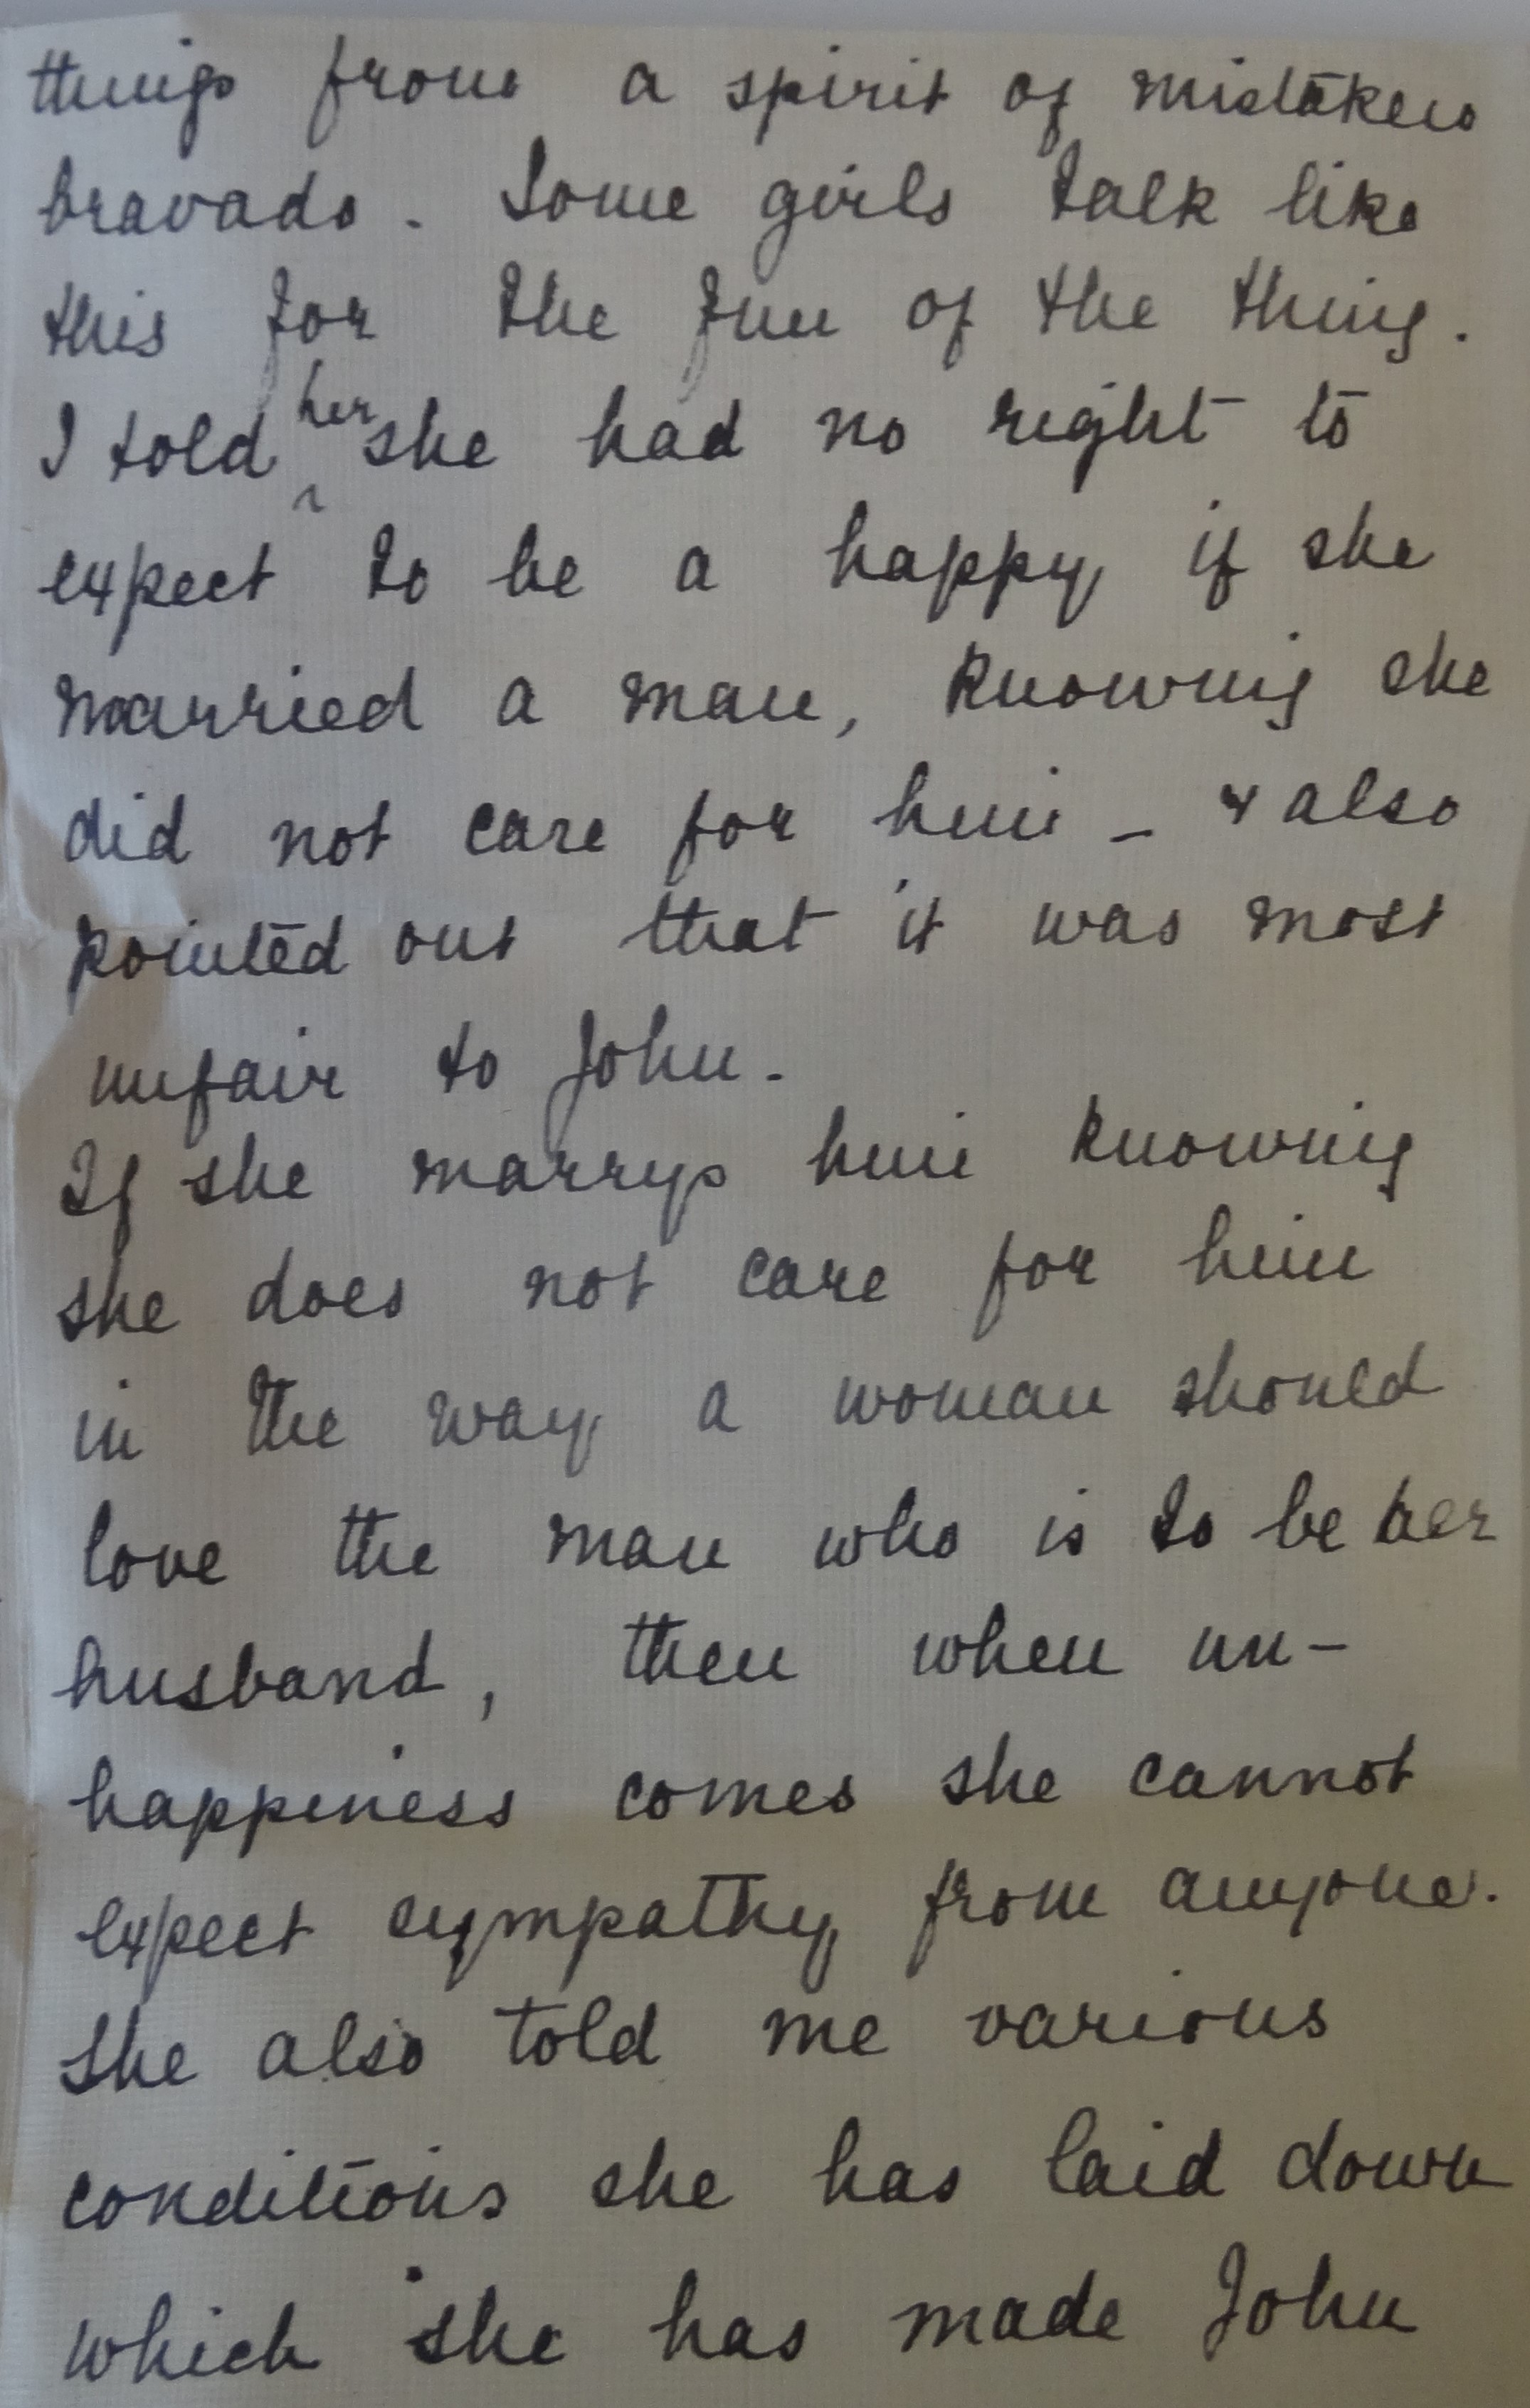 things from a spirit of mistaken
bravado. Some girls talk like
this for the fun of the thing.
I told her she had no right to
expect to be a happy if she
married a man, knowing she
did not care for him - & also
pointed out that it was most
unfair to John.
If she marrys him knowing
she does not care for him
in the way a woman should
love the man who is to be her
husband, then when un-
happiness comes she cannot
expect sympathy from anyone.
She also told me various
conditions she has laid down
which she has made John